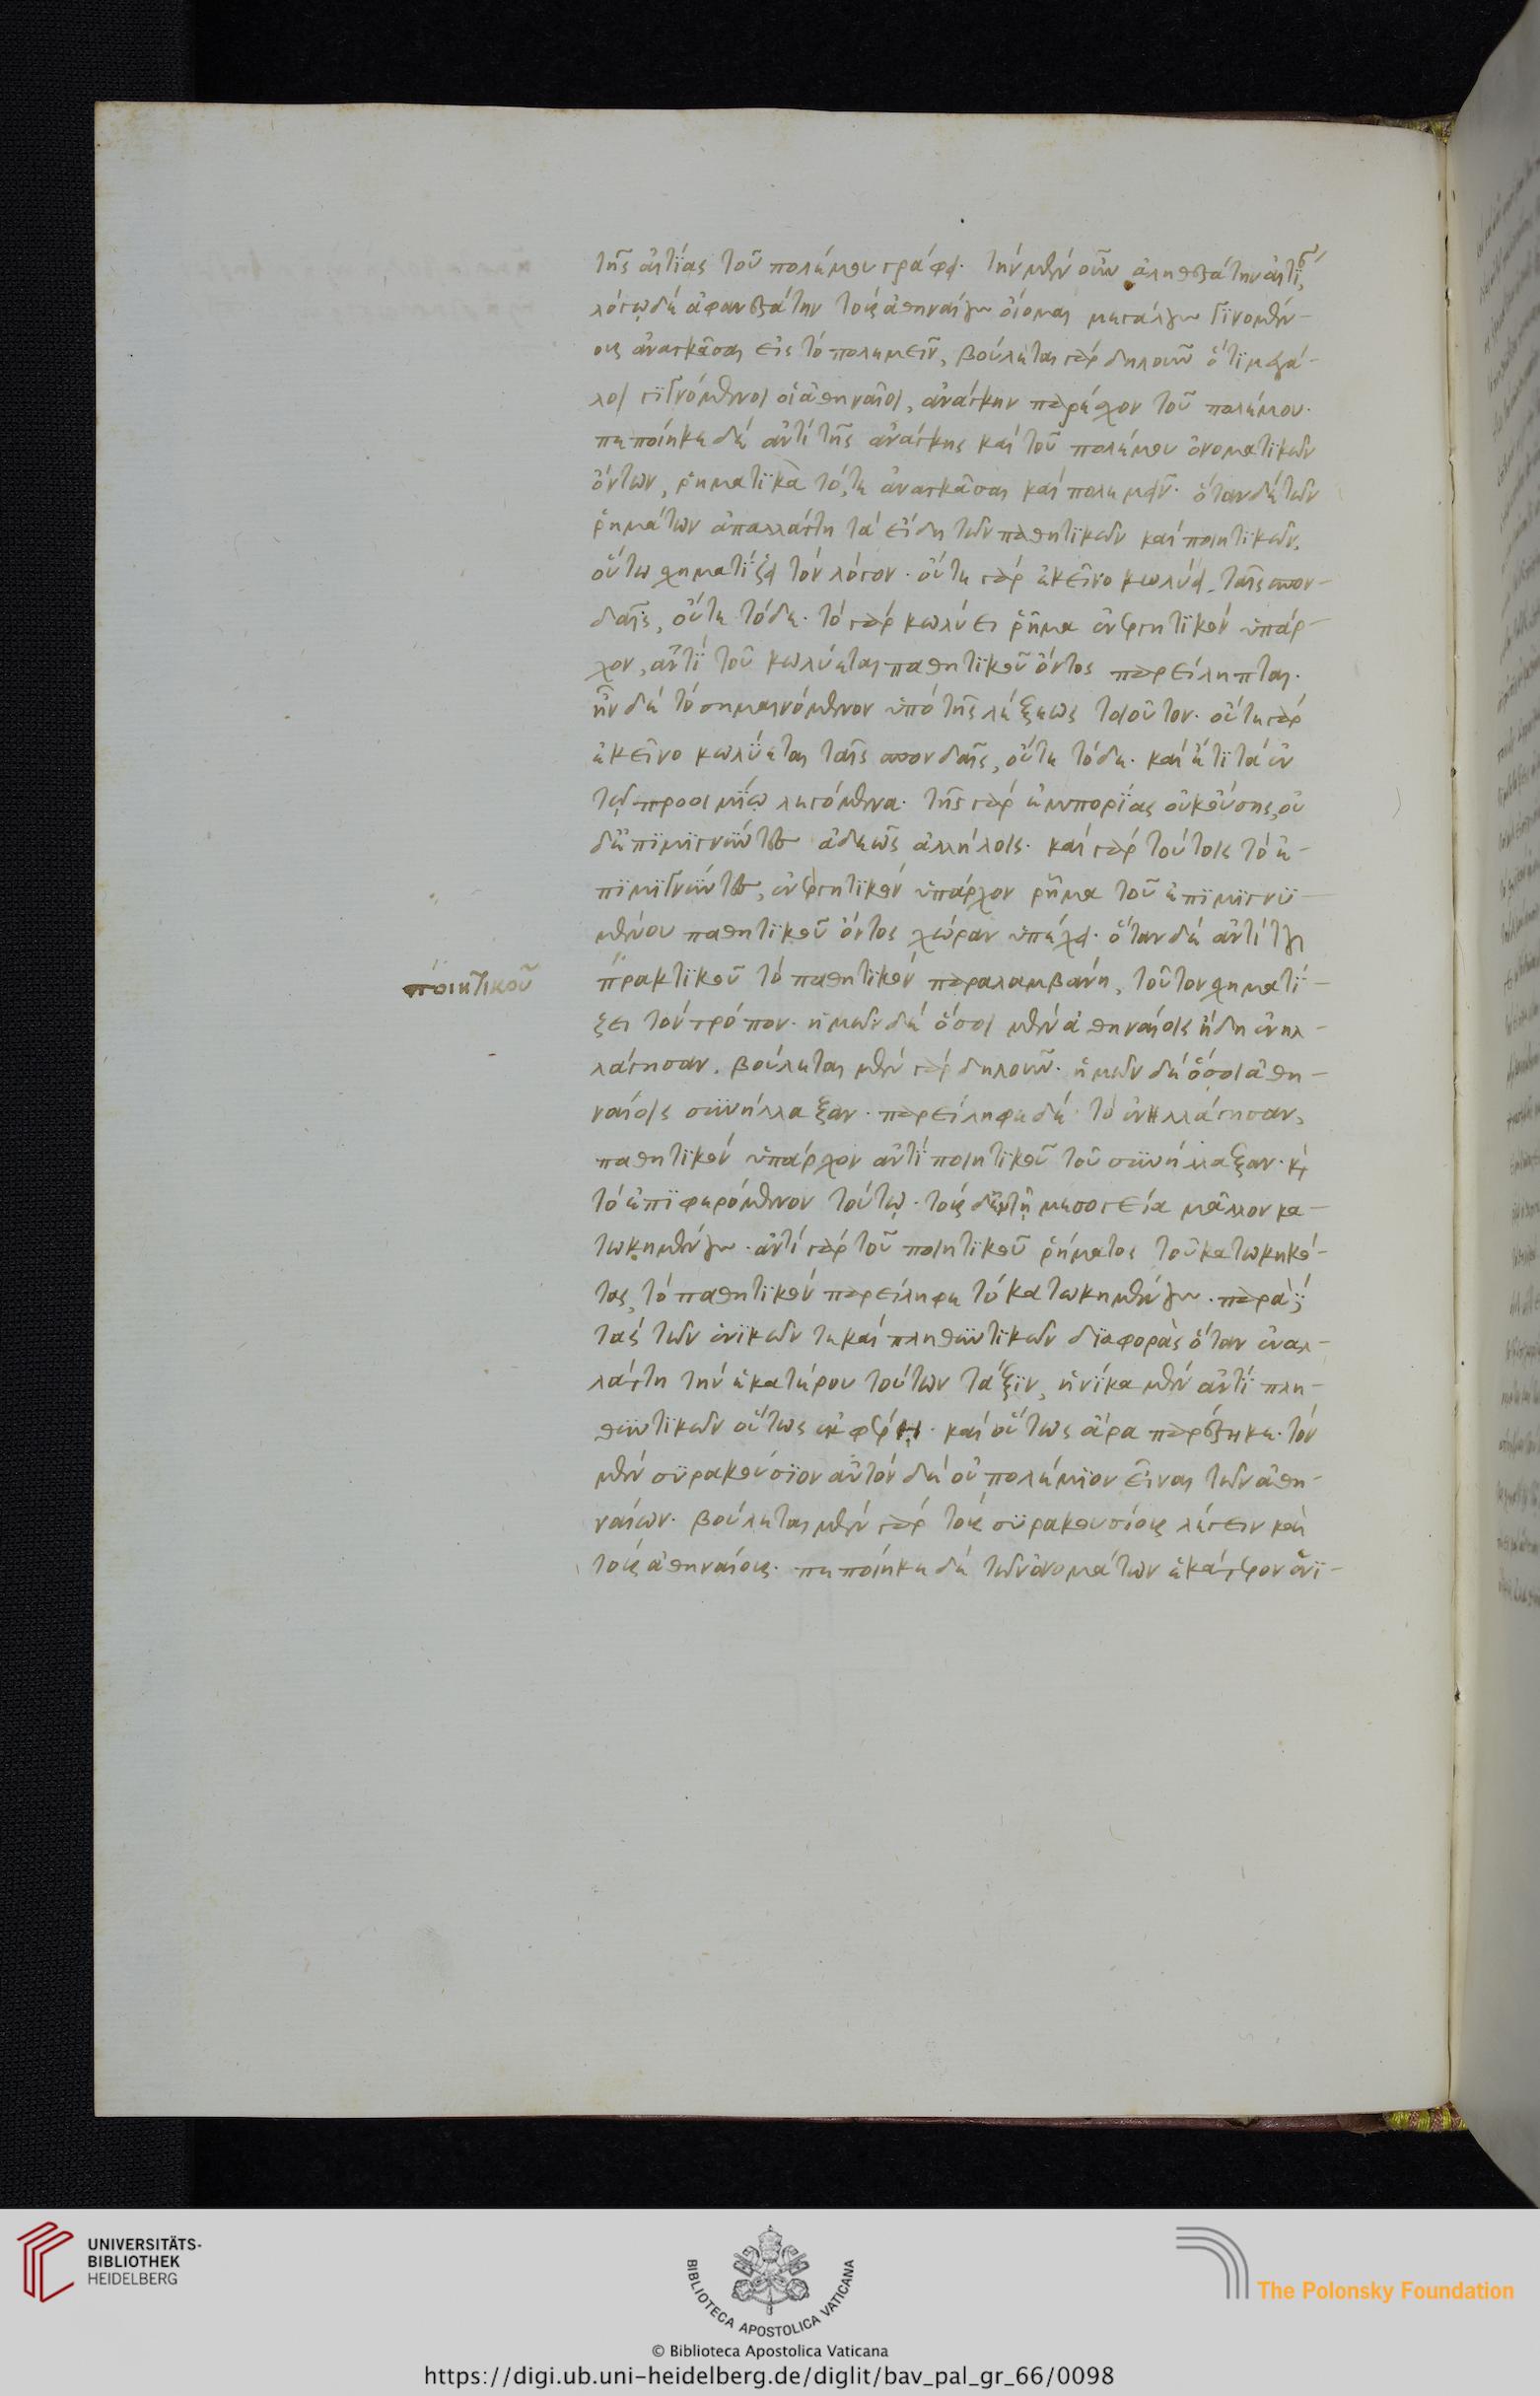 τῆς αἰτίας τοῦ πολέμου γράφει. τὴν μὲν οὖν ἀληθεστάτην αἰτίαν,
λόγῳ δὲ ἀφανεστάτην τοὺς ἀθηναίους οἴομαι μεγάλους γινομέν-
ους ἀναγκᾶσαι εἰς τὸ πολεμεῖν, βούλεται γὰρ δηλοῦν ὅτι μεγά-
λοι γιγνόμενοι οἱ ἀθηναῖοι, ἀνάγκην παρέσχον τοῦ πολέμου.
πεποίηκε δὲ ἀντὶ τῆς ἀνάγκης καὶ τοῦ πολέμου ὀνοματικῶν
ὄντων, ῥηματικὰ τό, τε ἀναγκᾶσαι καὶ πολεμεῖν. ὅταν δὲ τῶν
ῥημάτων ἀπαλλάττῃ τὰ εἴδη τῶν παθητικῶν καὶ ποιητικῶν,
οὕτω σχηματίζει τὸν λόγον. οὔτε γὰρ ἐκεῖνο κωλύει ταῖς σπον-
δαῖς, οὔτε τόδε. τὸ γὰρ κωλύει ῥῆμα ἐνεργητικὸν ὑπάρ-
χον, ἀντὶ τοῦ κωλύεται παθητικοῦ ὄντος παρείληπται.
ἦν δὲ τὸ σημαινόμενον ὑπὸ τῆς λέξεως τοιοῦτον. οὔτε γὰρ
ἐκεῖνο κωλύεται ταῖς σπονδαῖς, οὔτε τόδε. καὶ ἔτι τὰ ἐν
τῷ προοιμίῳ λεγόμενα. τῆς γὰρ ἐμπορίας οὐκ οὔσης, οὐ
δ' ἐπιμιγνύντες ἀδεῶς ἀλλήλοις. καὶ γὰρ τούτοις τὸ ἐ-
πιμιγνύντες, ἐνεργητικὸν ὑπάρχον ῥῆμα τοῦ ἐπιμιγνυ-
μένου παθητικοῦ ὄντος χώραν ὑπέχει. ὅταν δὲ ἀντὶ τοῦ
ποιητικοῦ
πρακτικοῦ τὸ παθητικὸν παραλαμβάνῃ, τοῦτον σχηματί-
ζει τὸν τρόπον. ἡμῶν δὲ ὅσοι μὲν ἀθηναίοις ἤδη ἐνηλ-
λάγησαν. βούλεται μὲν γὰρ δηλοῦν. ἡμῶν δὲ ὅσοι ἀθη-
ναίοις συνήλλαξαν. παρείληφε δὲ τὸ ἐνηλλάγησαν,
παθητικὸν ὑπάρχον ἀντὶ ποιητικοῦ τοῦ συνήλλαξαν. καὶ
τὸ ἐπιφερόμενον τούτῳ. τοὺς δ' ἐν τῇ μεσογεία μᾶλλον κα-
τῳκημένους. ἀντὶ γὰρ τοῦ ποιητικοῦ ῥήματος τοῦ κατῳκηκό-
τας, τὸ παθητικὸν παρείληφε τὸ κατῳκημένους. παρὰ
τὰς τῶν ἑνικῶν τε καὶ πληθυντικῶν διαφορὰς ὅταν ἐναλ-
λάττῃ τὴν ἑκατέρου τούτων τάξιν, ἡνίκα μὲν ἀντὶ πλη-
θυντικῶν οὕτως ἐκφέρῃ. καὶ οὕτως ἄρα παρέστηκε. τὸν
μὲν συρακούσιον αὐτὸν δὲ οὐ πολέμιον εἶναι τῶν ἀθη-
ναίων. βούλεται μὲν γὰρ τοὺς συρακουσίους λέγειν καὶ
τοὺς ἀθηναίους. πεποίηκε δὲ τῶν ὀνομάτων ἑκάτερον ἑνι-
UNIVERSITÄTS-
BIBLIOTHEK
HEIDELBERG
BIBLIOTECA APOSTOLICA VATICANA
© Biblioteca Apostolica Vaticana
The Polonsky Foundation
https://digi.ub.uni-heidelberg.de/diglit/bav_pal_gr_66/0098